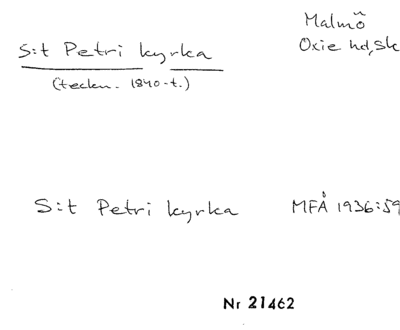 S:t Petri kyrka
(teckn. 1840-t.)
Malmö
Oxie hd, Sk
S:t Petri kyrka MFÅ 1936:59
Nr 21462